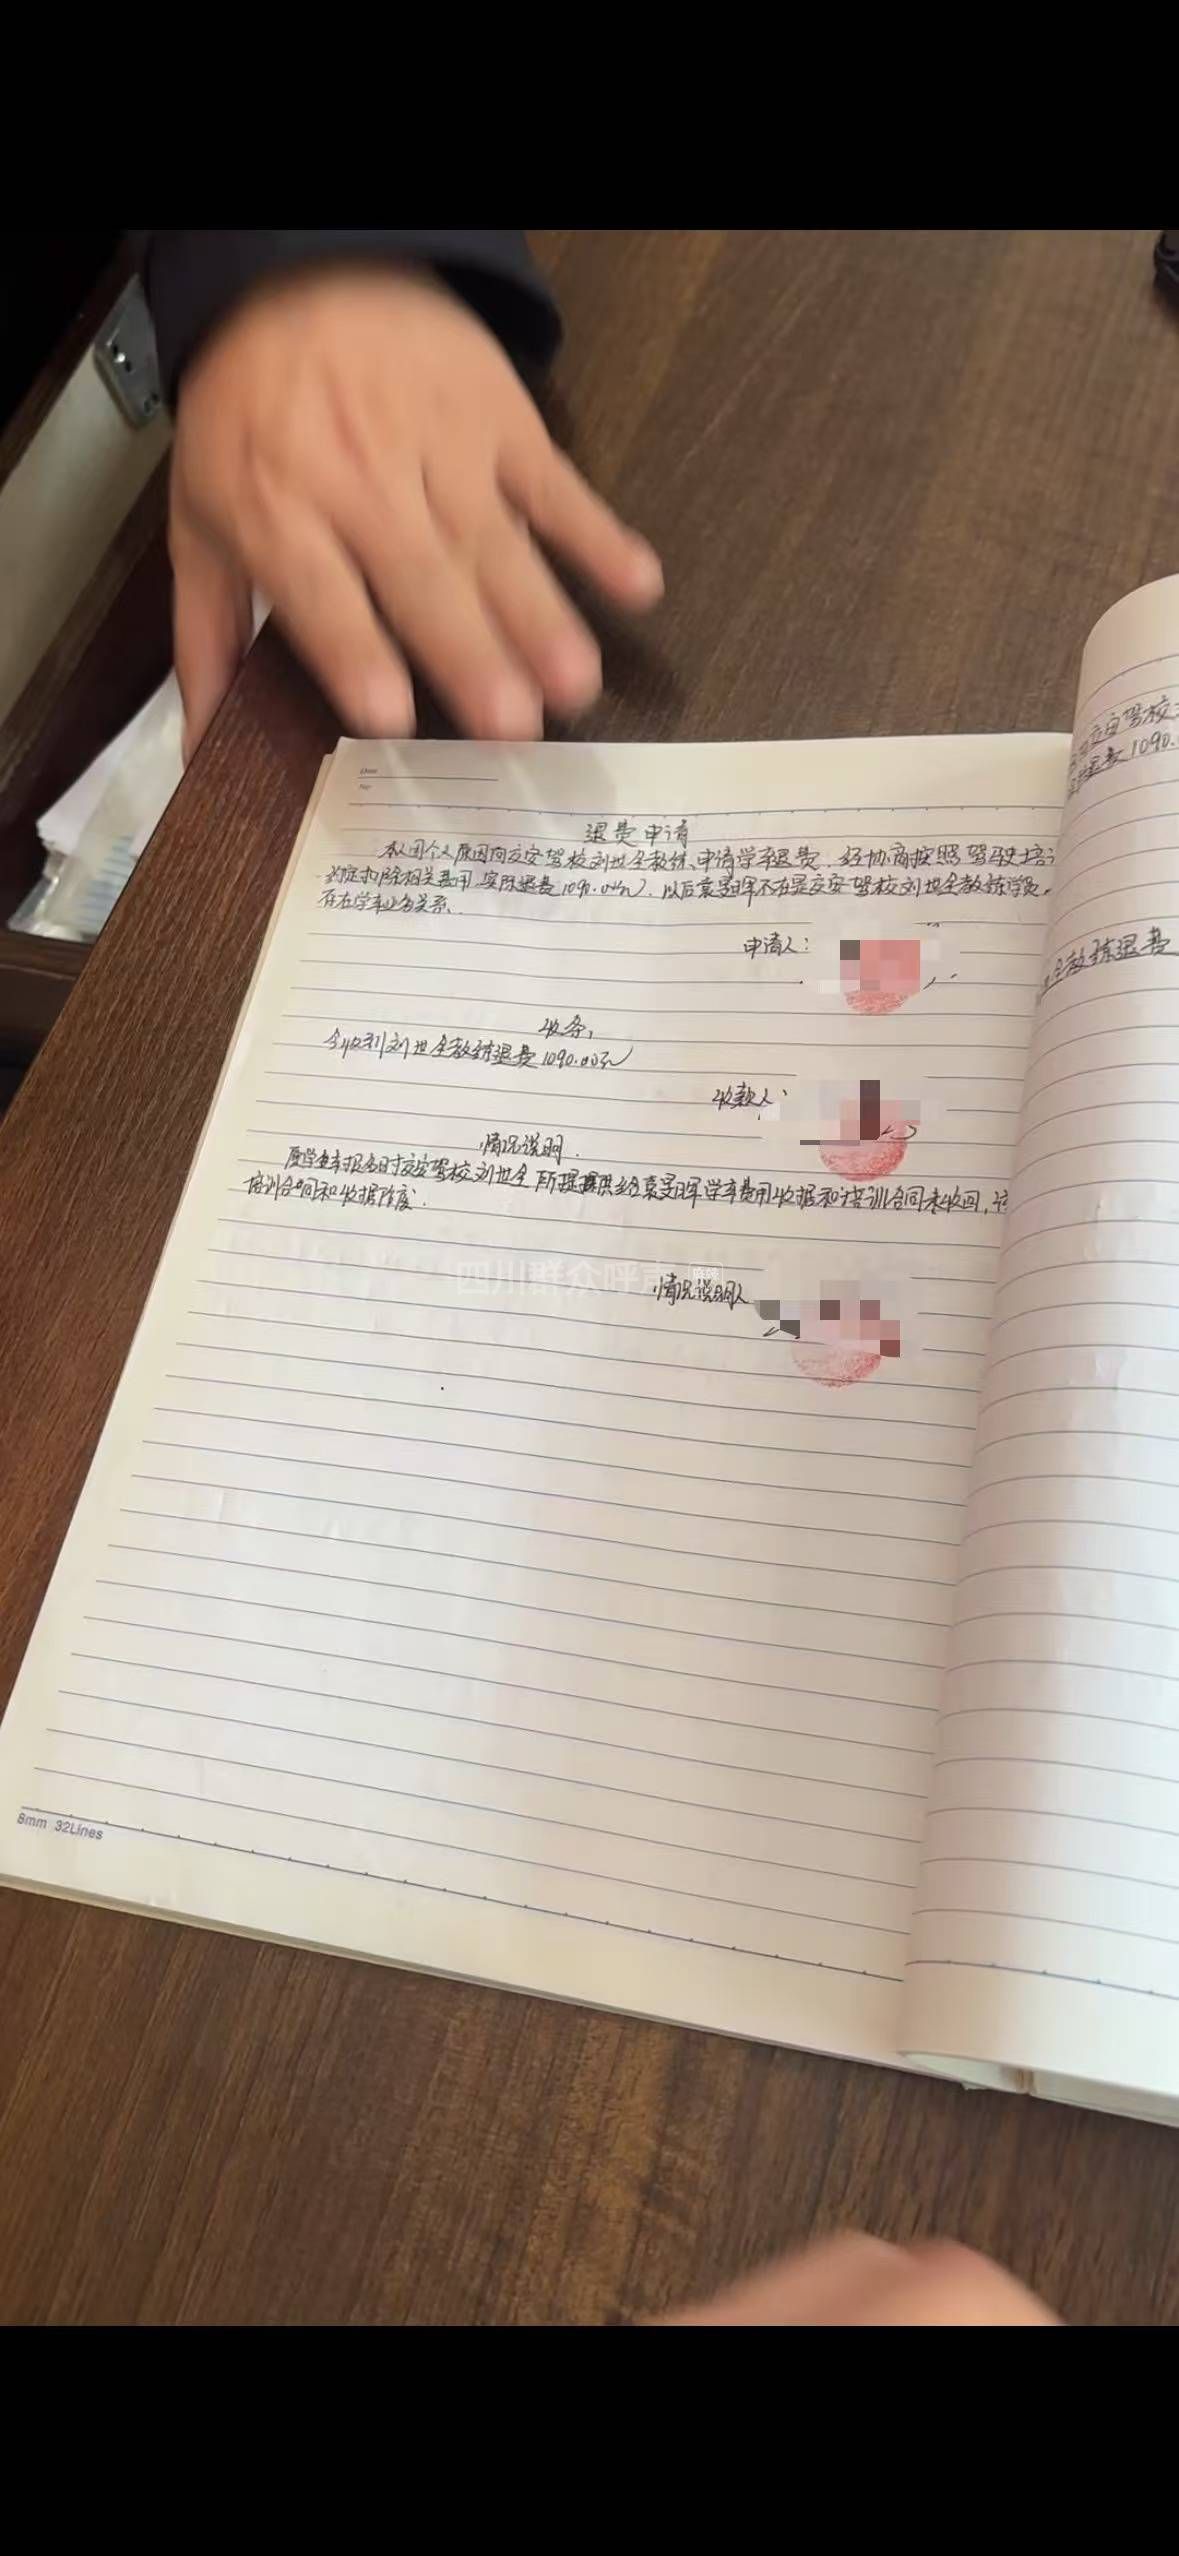 Date
No
退费申请
本人因个人原因向交安驾校刘世全教练申请学车退费，经协商按照驾驶培
约定扣除相关费用，实际退费1090.00元，以后袁 晖不在是交安驾校刘世全教练学员，
存在学车业务关系.
申请人：
收条，
今收到刘世全教练退费1090.00元
收款人：
情况说明.
原学车报名时交安驾校刘世全所提供给袁 晖学车费用收据和培训合同未收回，
培训合同和收据作废.
情况说明人
四川群众呼声
8mm 32Lines
交安驾校
退费1090.
全教练退费